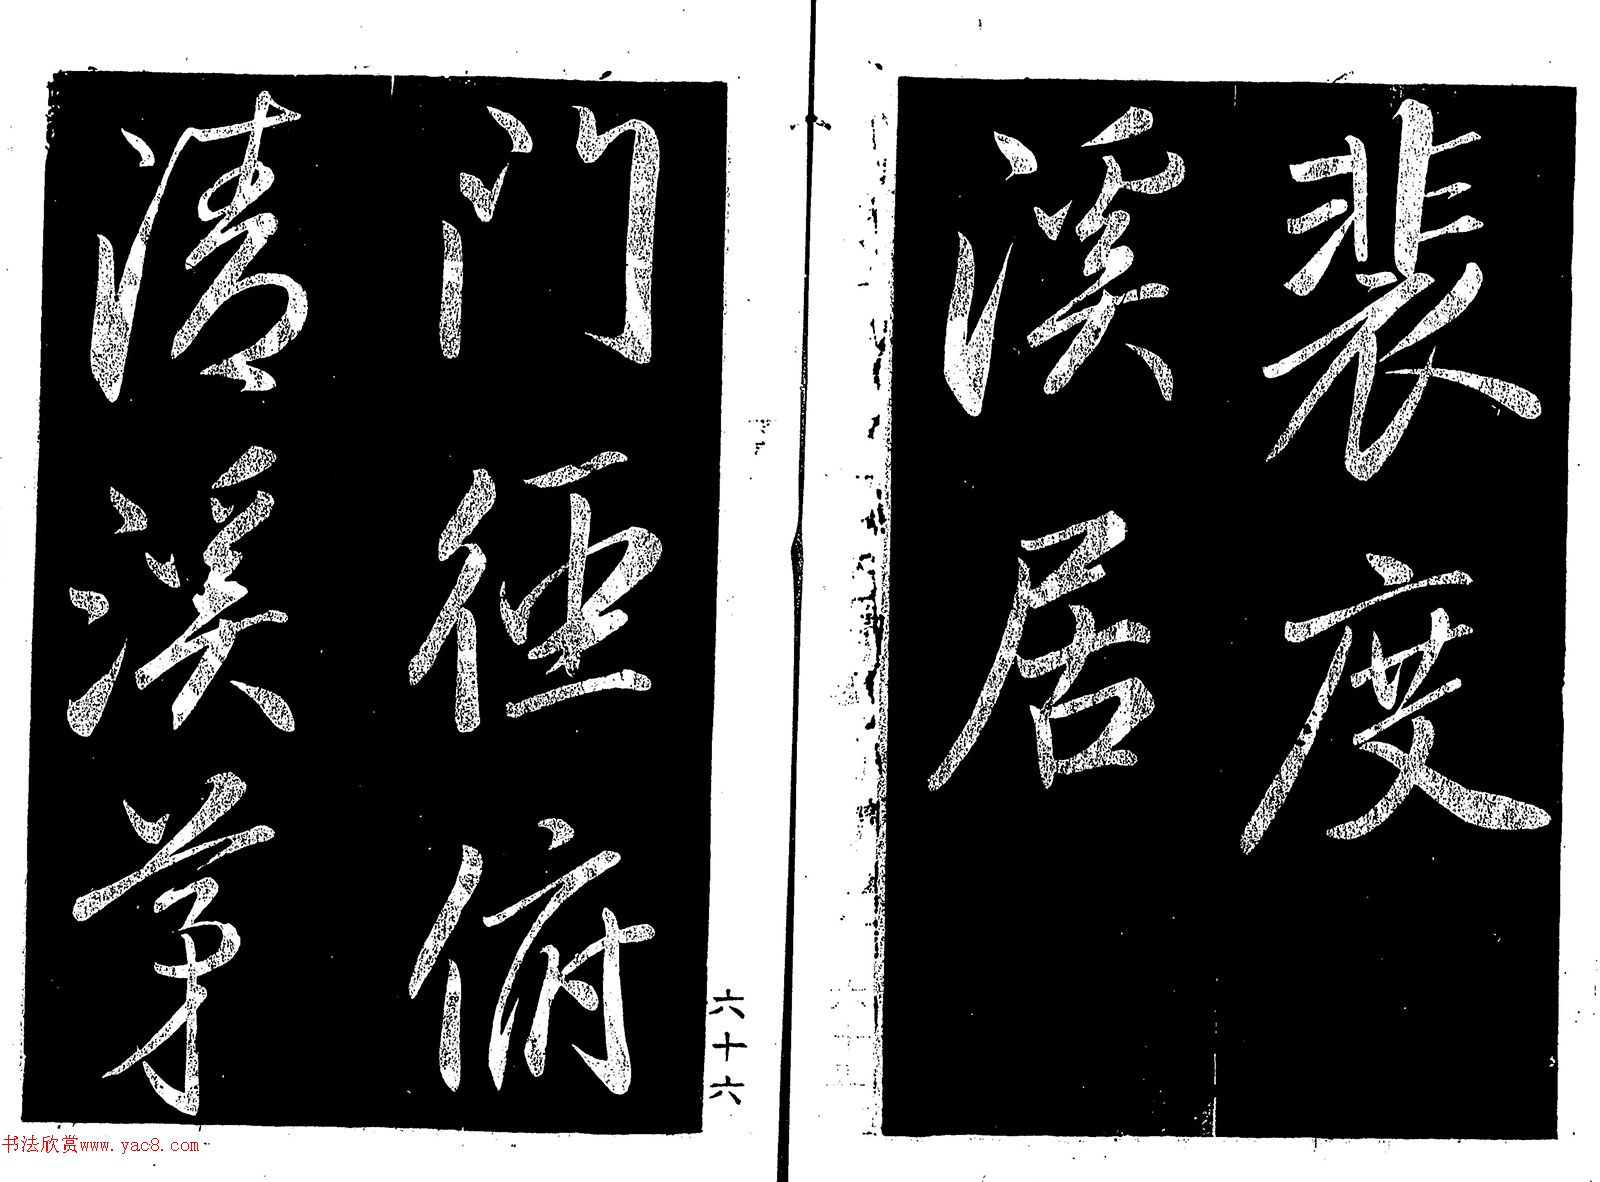 裴度
溪居
門徑俯
清溪茅
六十六
书法欣赏www.yac8.com